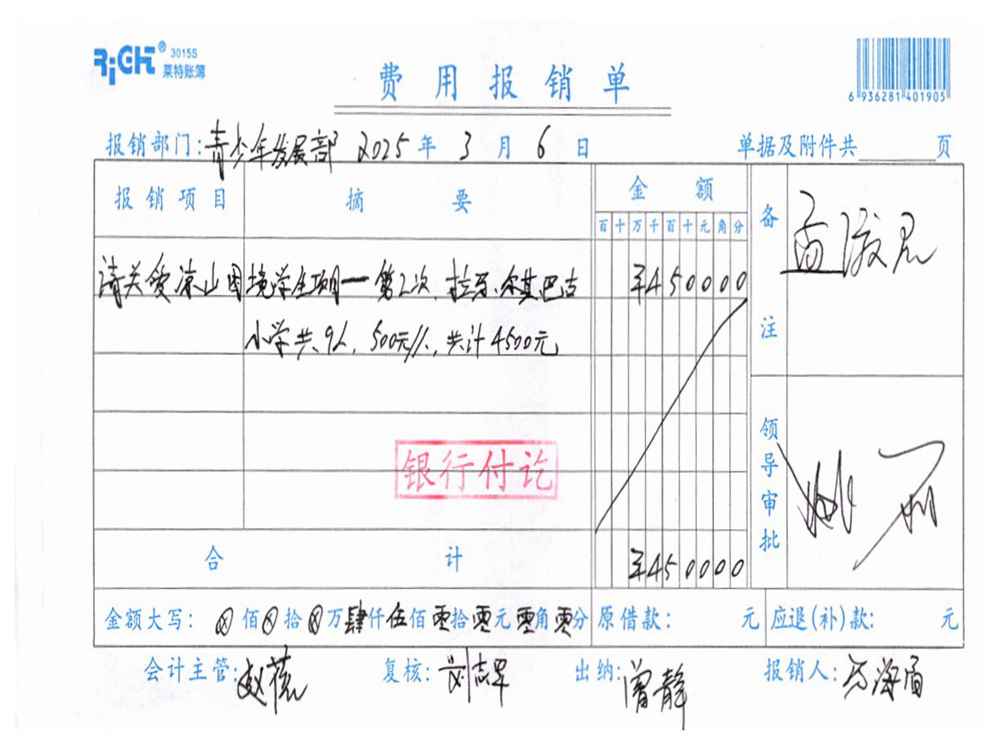 RiCHE® 3015S
莱特账簿
费用报销单
6 936281 401905
报销部门:青少年发展部 2025年3月6日 单据及附件共 页
报销项目 摘要 金额 备注
百十万千百十元角分
请关爱凉山困境学生项目一第2次,拉马、尔其、巴古 ¥450000
小学共9人,500元/人,共计4500元
银行付讫
领导审批
合计 ¥450000
金额大写:⊗佰⊗拾⊗万肆仟伍佰零拾零元零角零分 原借款: 元 应退(补)款: 元
会计主管: 复核: 出纳:曾静 报销人: